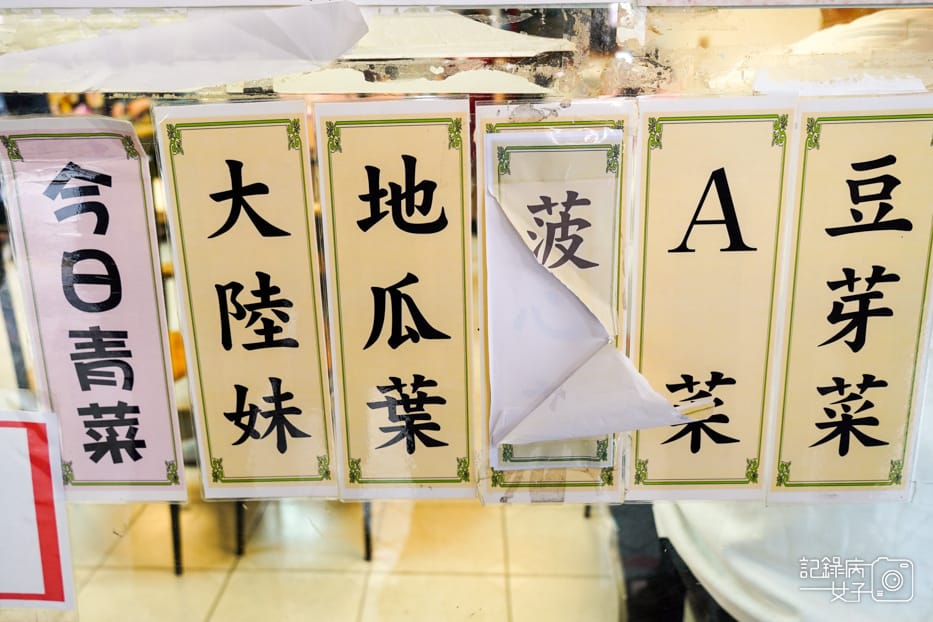 今日青菜
大陸妹
地瓜葉
菠
A菜
豆芽菜
記錄病
女子